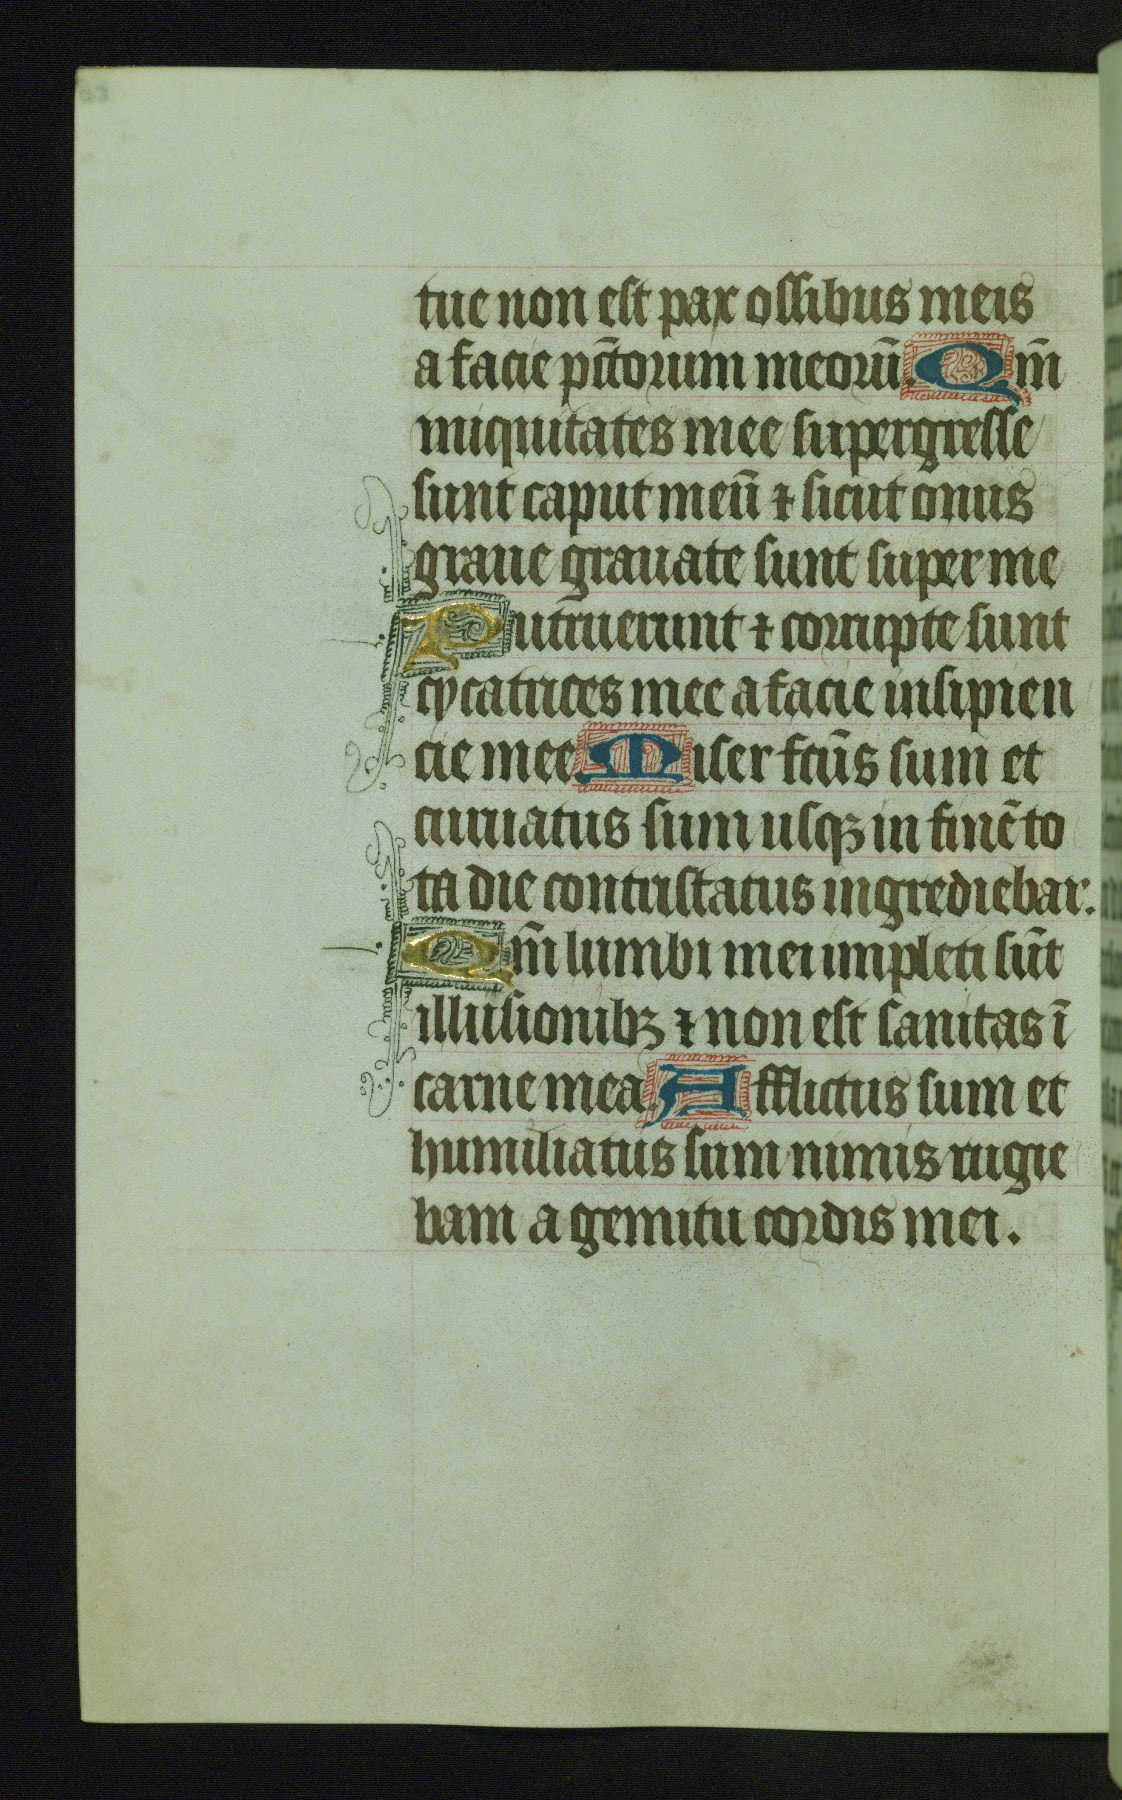 tue non est pax ossibus meis
a facie pc̄torum meorū. Qm̄
iniquitates mee supergresse
sunt caput meū ⁊ sicut onus
graue grauate sunt super me
Putruerunt ⁊ corrupte sunt
cycatrices mee a facie insipien
cie mee. Miser fcūs sum et
curuatus sum usqꝫ in finē to
ta die contristatus ingrediebar.
Qm̄ lumbi mei impleti sūt
illusionibꝫ ⁊ non est sanitas ī
carne mea. Afflictus sum et
humiliatus sum nimis rugie
bam a gemitu cordis mei.